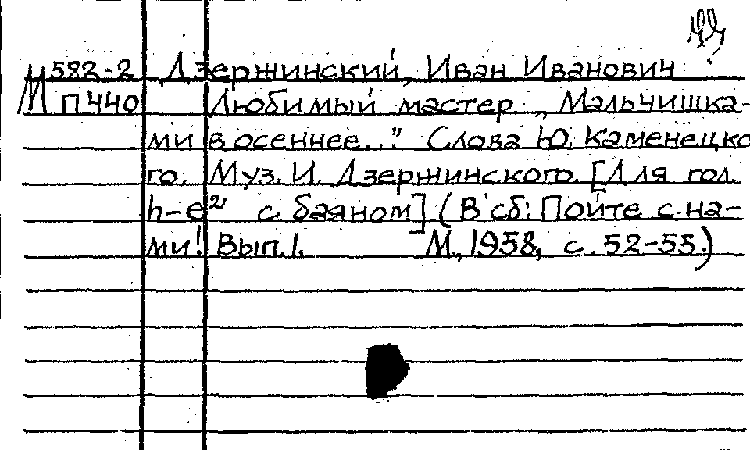 М 582-2 Дзержинский, Иван Иванович
П440 Любимый мастер. „Мальчишка-
ми в осеннее..." Слова Ю. Каменецко
го. Муз. И. Дзержинского. [Для гол.
h-e² с баяном] (В сб: Пойте с на-
ми! Вып. 1. М., 1958, с. 52-55.)